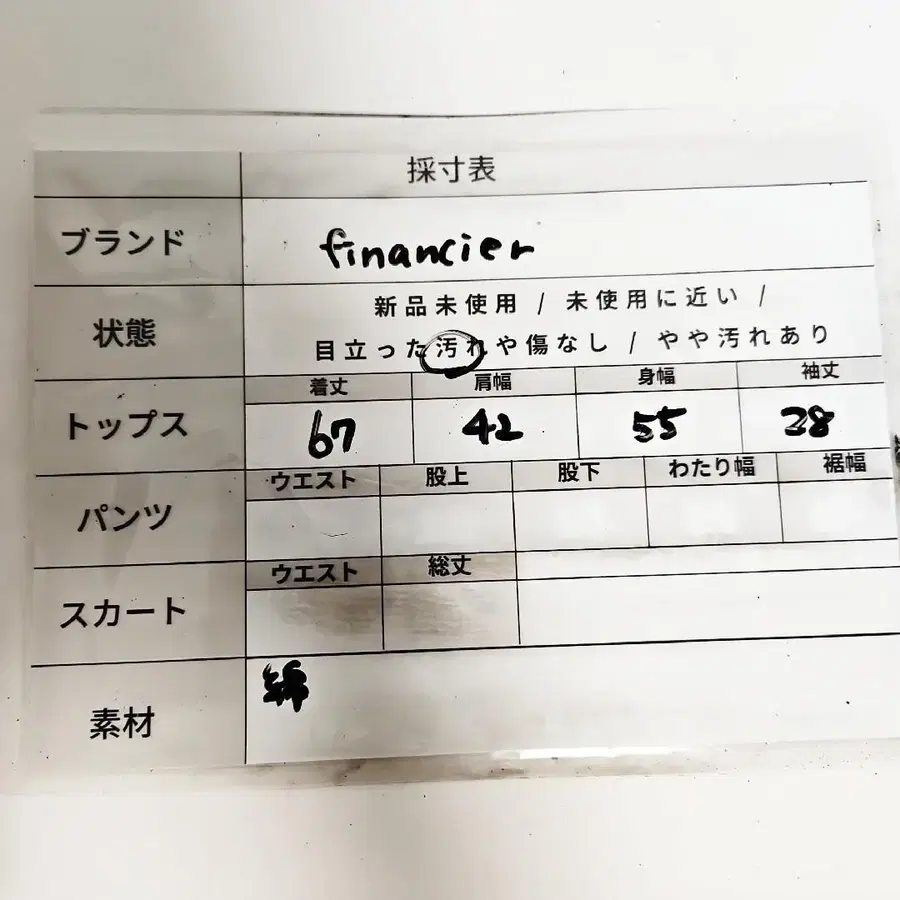 採寸表
ブランド financier
状態 新品未使用 / 未使用に近い /
目立った汚れや傷なし / やや汚れあり
着丈 肩幅 身幅 袖丈
トップス 67 42 55 38
ウエスト 股上 股下 わたり幅 裾幅
パンツ
ウエスト 総丈
スカート
素材 綿